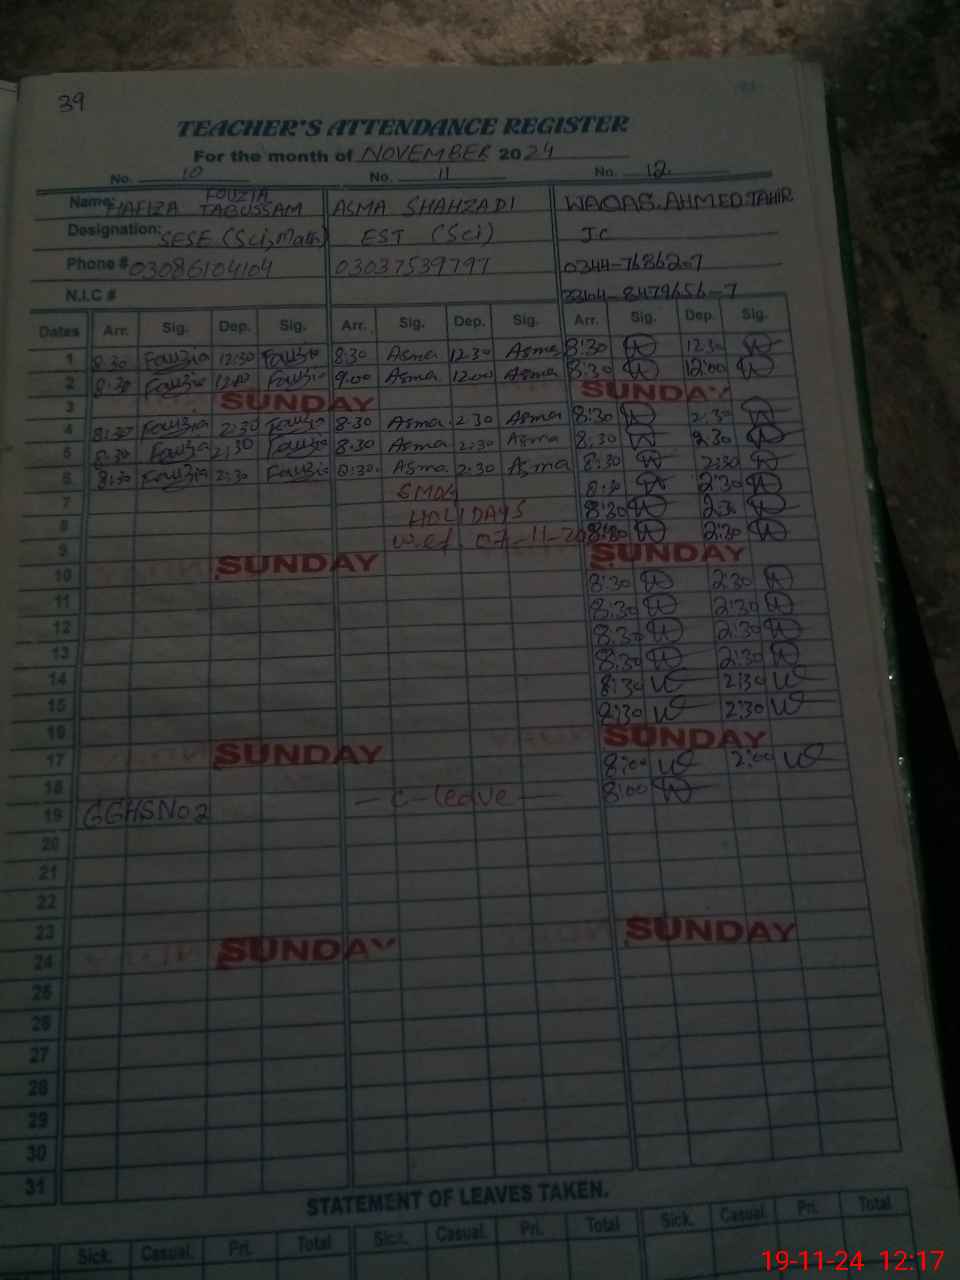 39
TEACHER'S ATTENDANCE REGISTER
For the month of NOVEMBER 2024
No. 10 No. 11 No. 12
Name: HAFIZA FOUZIA TABUSSAM ASMA SHAHZADI WAQAS AHMED TAHIR
Designation: SESE (Sci, Math) EST (Sci) J.C
Phone # 03086104104 03037539797
N.I.C #
Dates Arr. Sig. Dep. Sig. Arr. Sig. Dep. Sig. Arr. Sig. Dep. Sig.
1 8:30 Fouzia 12:30 Fouzia 8:30 Asma 12:30 Asma 8:30 12:30
2 8:30 Fouzia 12:00 Fouzia 9:00 Asma 12:00 Asma 8:30 12:00
3 SUNDAY SUNDAY
4 8:30 Fouzia 2:30 Fouzia 8:30 Asma 2:30 Asma 8:30 2:30
5 8:30 Fouzia 2:30 Fouzia 8:30 Asma 2:30 Asma 8:30 2:30
6 8:30 Fouzia 2:30 Fouzia 8:30 Asma 2:30 Asma 8:30 2:30
7 SMOG 8:30 2:30
8 HOLIDAYS 8:30 2:30
9 w.e.f 07-11-20 8:30 2:30
10 SUNDAY SUNDAY
11 8:30 2:30
12 8:30 2:30
13 8:30 2:30
14 8:30 2:30
15 8:30 2:30
16 8:30 2:30
17 SUNDAY SUNDAY
18 8:00 2:00
19 GGHS No 2 - C - leave - 8:00
20
21
22
23
24 SUNDAY SUNDAY
25
26
27
28
29
30
31
STATEMENT OF LEAVES TAKEN.
Sick. Casual. Pri. Total Sick. Casual. Pri. Total Sick. Casual Pri. Total
19-11-24 12:17